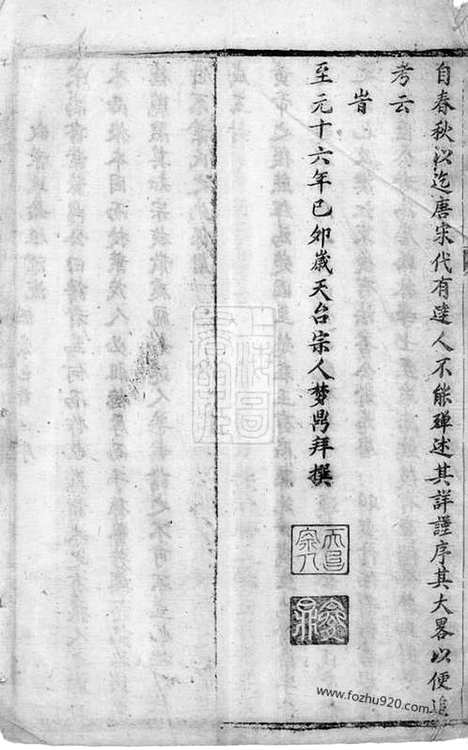 自春秋以迄唐宋代有達人不能殫述其詳謹序其大畧以便追
考云
旹
至元十六年己卯歲天台宗人夢鼎拜撰
www.fozhu920.com